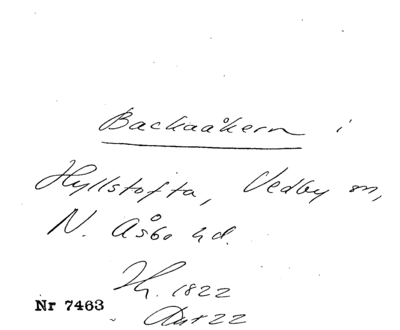 Backaåkern i
Hyllstofta, Vedby sn,
N. Åsbo hd.
1822
Nr 7463
22